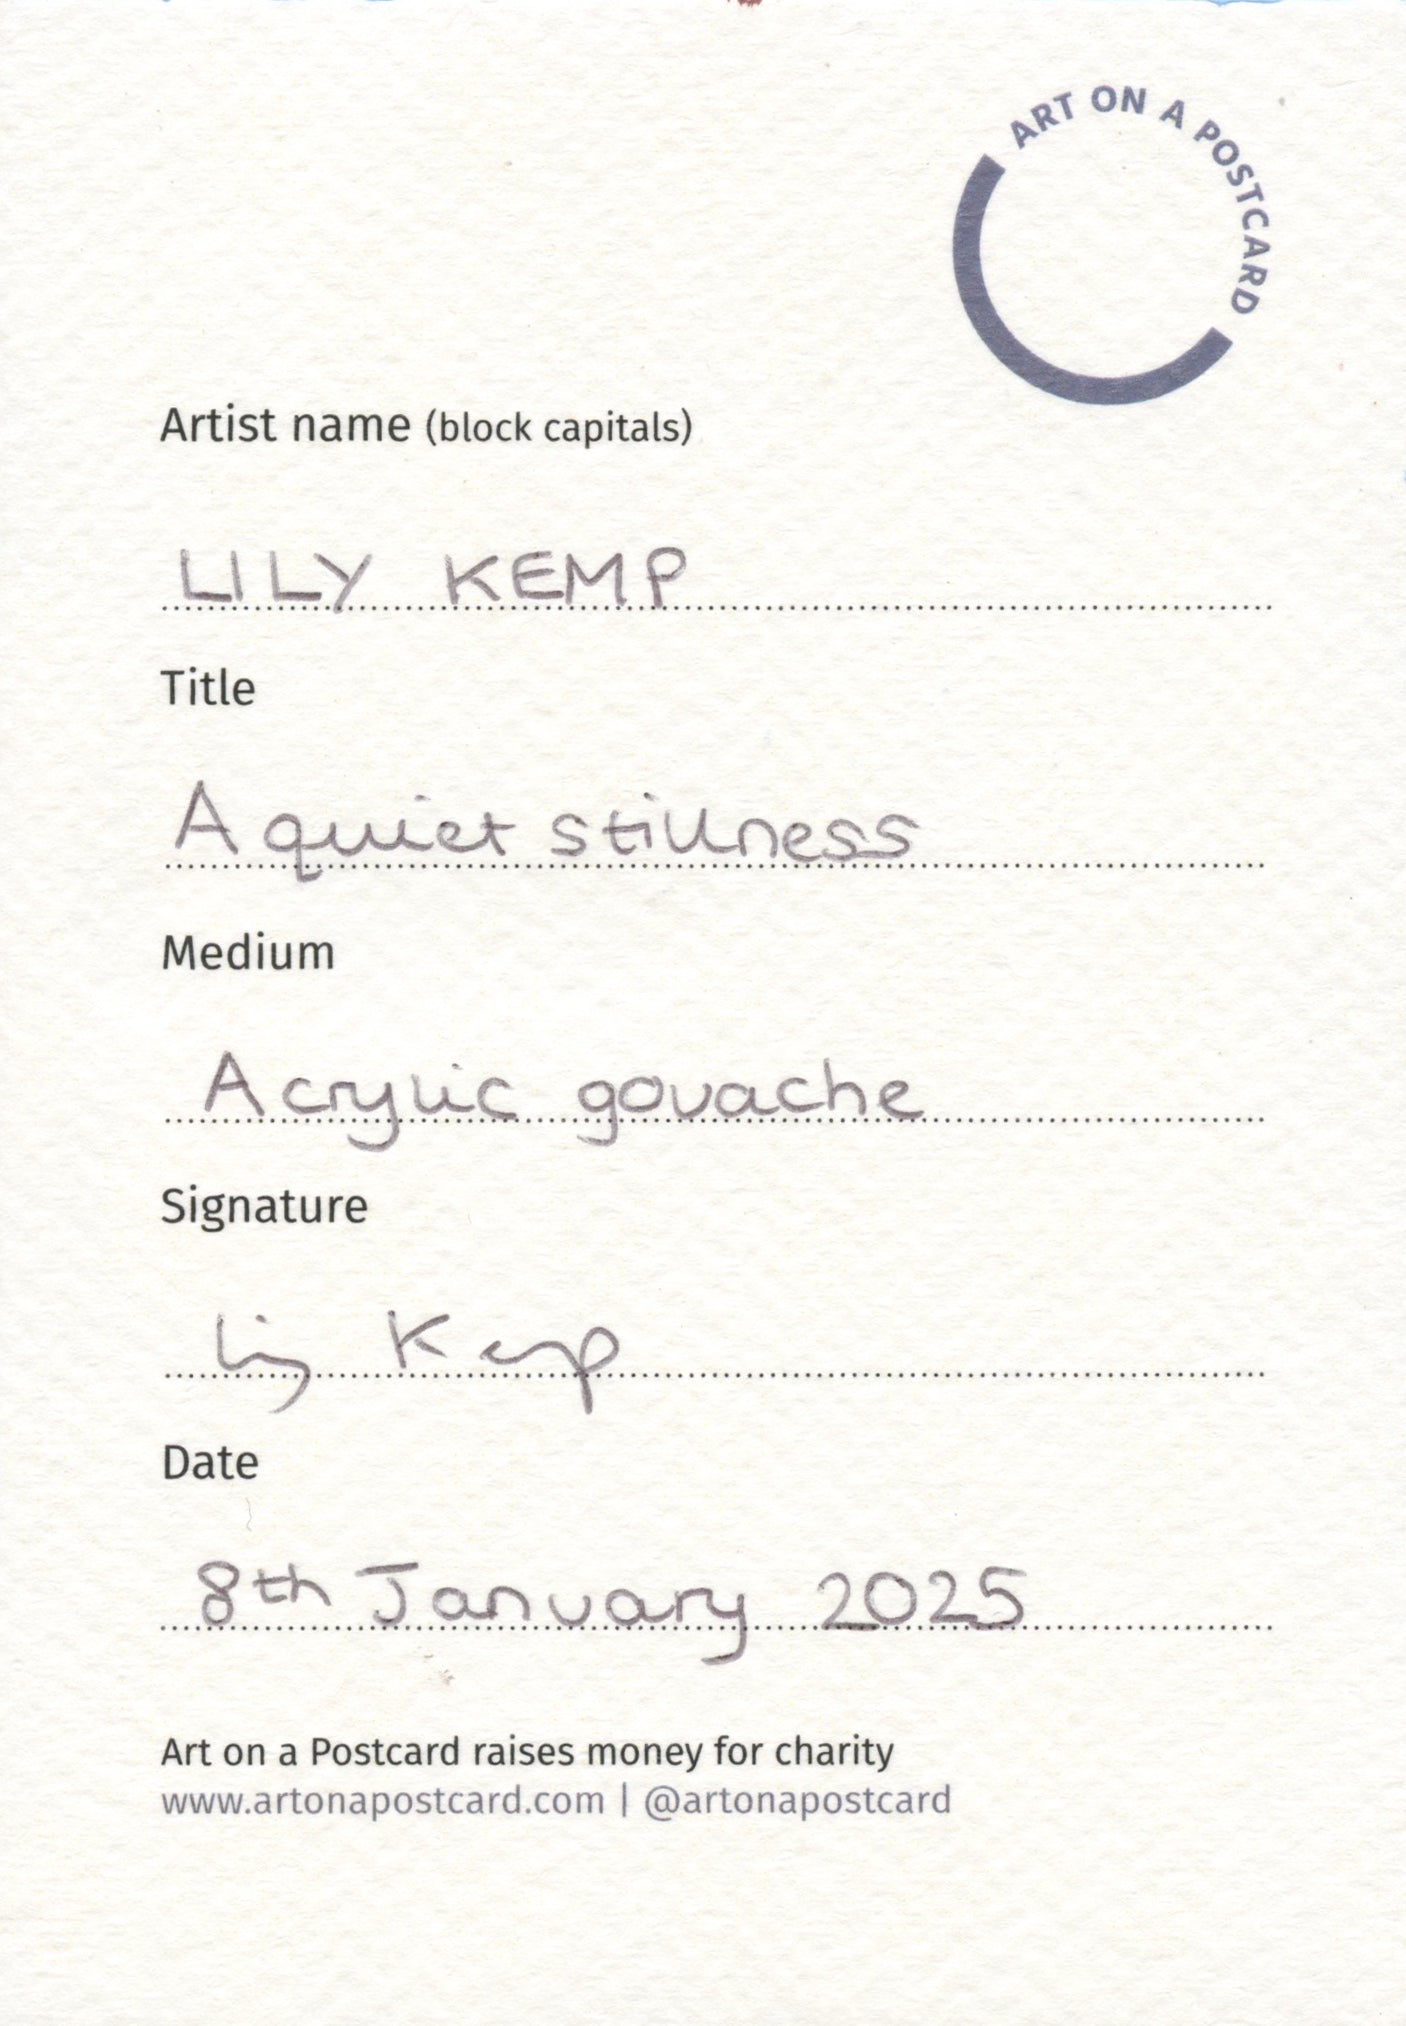 ART ON A POSTCARD
Artist name (block capitals)
LILY KEMP
Title
A quiet stillness
Medium
Acrylic gouache
Signature
Lily Kemp
Date
8th January 2025
Art on a Postcard raises money for charity
www.artonapostcard.com | @artonapostcard